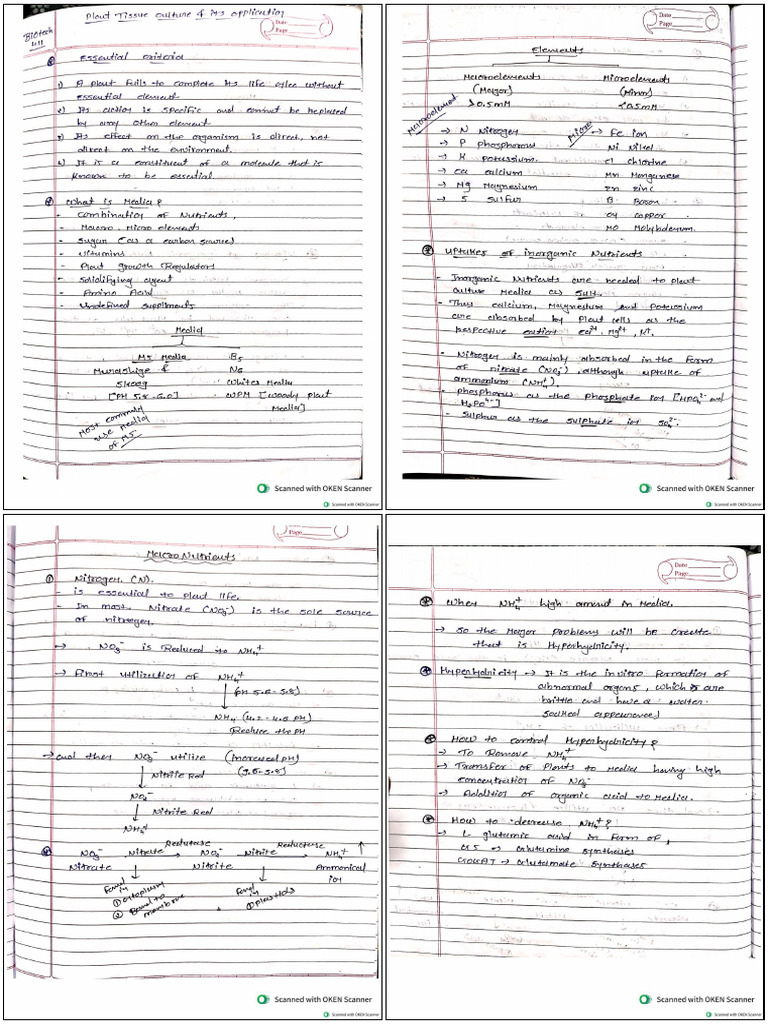 Plant Tissue culture & its application
Date
Page
Biotech
411
Essential criteria
1) A plant fails to complete its life cycle without
essential element
2) Its action is specific and cannot be replaced
by any other element
3) Its effect on the organism is direct, not
direct on the environment.
4) It is a constituent of a molecule that is
known to be essential.
What is Media?
- combination of Nutrients,
- Macro, micro elements
- Sugar (as a carbon source)
- vitamins
- Plant growth Regulators
- Solidifying agent
- Amino Acid
- undefined suppliments
Media
MS Media B5
Murashige & N6
Skoog Whites Media
[PH 5.8-6.0] WPM [woody plant
Media]
Most commonly
use media
of MS
Scanned with OKEN Scanner
Scanned with OKEN Scanner
Date
Page
Elements
Macroelements Microelements
(Major) (Minor)
>0.5mM <0.5mM
Macroelement Micro
→ N Nitrogen → Fe ion
→ P phosphorous Ni Nikel
→ K potassium. Cl chlorine
→ ca calcium Mn Manganese
→ Mg Magnesium Zn zinc
→ S sulfur B Boron
Cu copper
MO Molybdenum.
uptakes of inorganic Nutrients
- Inorganic Nutrients are needed to plant
culture Media as Salt.
- Thus calcium, Magnesium and Potassium
are absorbed by plant cells as the
respective cation Ca2+, Mg2+, K+.
- Nitrogen is mainly absorbed in the form
of nitrate (NO3-) although uptake of
ammonium (NH4+).
- phosphorus as the phosphate ion [HPO4 2- and
H2PO4 2-]
- Sulphur as the sulphate ion SO4 2-.
Scanned with OKEN Scanner
Scanned with OKEN Scanner
Page
Macro Nutrients
① Nitrogen (N).
- is essential to plant life.
- In most Nitrate (NO3-) is the sole source
of nitrogen.
→ NO3- is Reduced to NH4+
→ First utilization of NH4+
(PH 5.6-5.8)
NH4 (4.2-4.6 PH)
Reduce the PH
→ and then NO3- utilize (Increased PH)
Nitrite Red (5.5-5.8)
NO2-
Nitrite Red
NH4+
NO3- Nitrate Reductase NO2- Nitrite Reductase NH4+
Nitrate Nitrite Ammonical
ion
Found in Found in
① cytoplasm ① plastids
② Bound to
membrane
Scanned with OKEN Scanner
Scanned with OKEN Scanner
Date
Page
When NH4+ high amount in Media.
→ so the Major problems will be create
that is Hyperhydricity.
Hyperhydricity → It is the in vitro formation of
abnormal organs, which is are
brittle and have a water
soaked appearance)
How to control Hyperhydricity?
→ To Remove NH4+
→ Transfer of Plants to Media having high
concentration of NO3-
→ Addition of organic acid to Media.
How to decrease NH4+?
→ L glutamic acid in form of,
GS → Glutamine syntheses
GOGAT → Glutamate syntheses
Scanned with OKEN Scanner
Scanned with OKEN Scanner